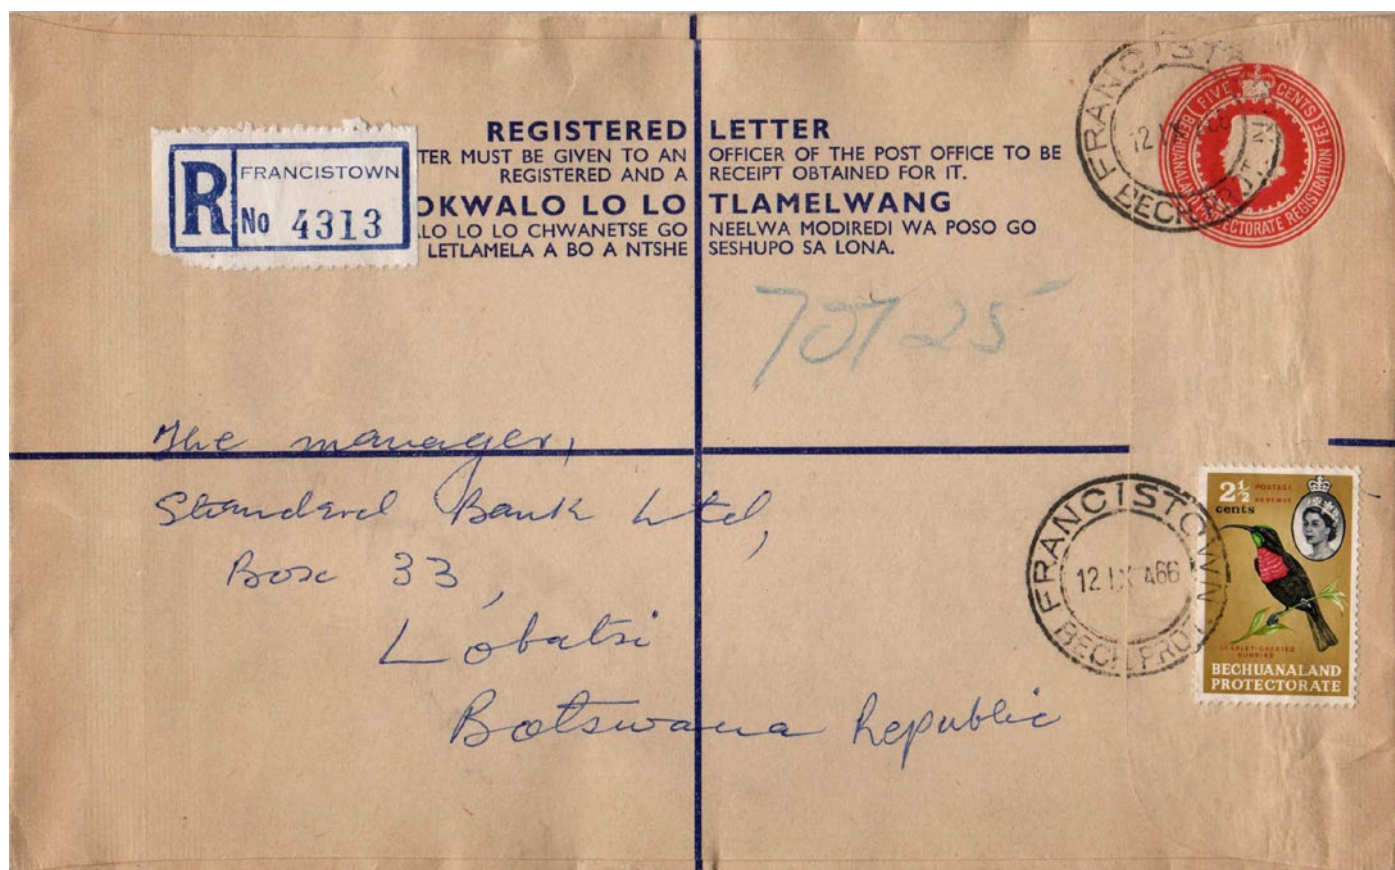 REGISTERED LETTER
TER MUST BE GIVEN TO AN OFFICER OF THE POST OFFICE TO BE
REGISTERED AND A RECEIPT OBTAINED FOR IT.
OKWALO LO LO TLAMELWANG
LO LO LO CHWANETSE GO NEELWA MODIREDI WA POSO GO
LETLAMELA A BO A NTSHE SESHUPO SA LONA.
R
FRANCISTOWN
No 4313
FIVE CENTS
BECHUANALAND PROTECTORATE REGISTRATION FEE
FRANCISTOWN
BECH. PROT.
The manager,
Standard Bank Ltd,
Box 33,
Lobatsi
Botswana Republic
FRANCISTOWN
12 IX 466
BECH. PROT.
2½ POSTAGE
cents REVENUE
SCARLET-CHESTED
SUNBIRD
BECHUANALAND
PROTECTORATE